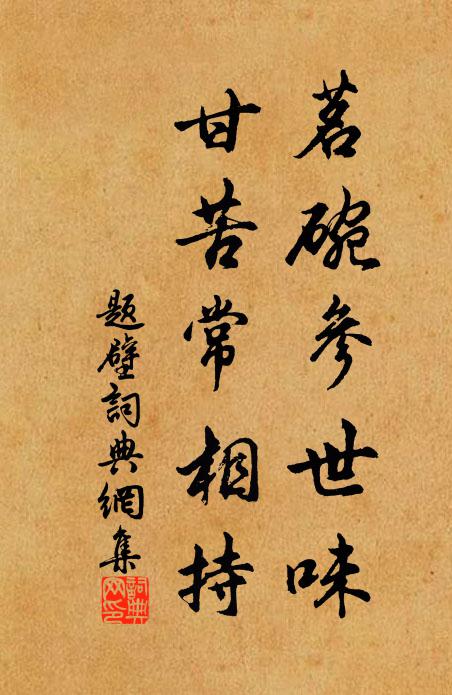 茗碗參世味
甘苦常相持
題壁詞典網集
詞典
网印